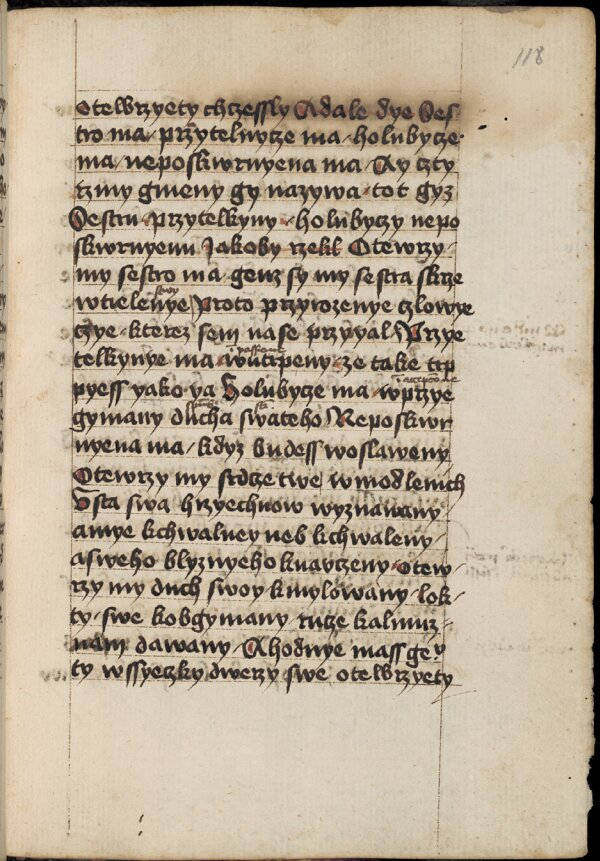 118
otewrzyety chczessly Adale dye Ses
tro ma przytelnycze ma holubycze
ma neposkwrnyena ma Ay czty
trmy gmeny gy nazywa tot gyz
Sestru przytelkyny holubyczy nepo
skwrnyenu Jakoby rzekl Otewrzy
my sestro ma genz sy my sestra skrze
wtielenye Proto przyrozenye czlowye
czye kterez sem nase przyyal Przye
telkynye ma wutrpeny ze take trp
pyess yako ya Holubycze ma wprzye
gymany ducha swateho Neposkwr
nyena ma kdyz budess woslaweny
Otewrzy my srdcze twe wmodlenich
Usta swa hrzyechuow wyznawany
amye kchwalney neb kchwaleny
asweho blyznyeho knavczeny otew
rzy my duch swoy kmylowany lok
ty swe kobgymany rucze kalmuz
nam dawany Ahodnye mass gey
ty wssyeczky dwerzy swe otewrzyety